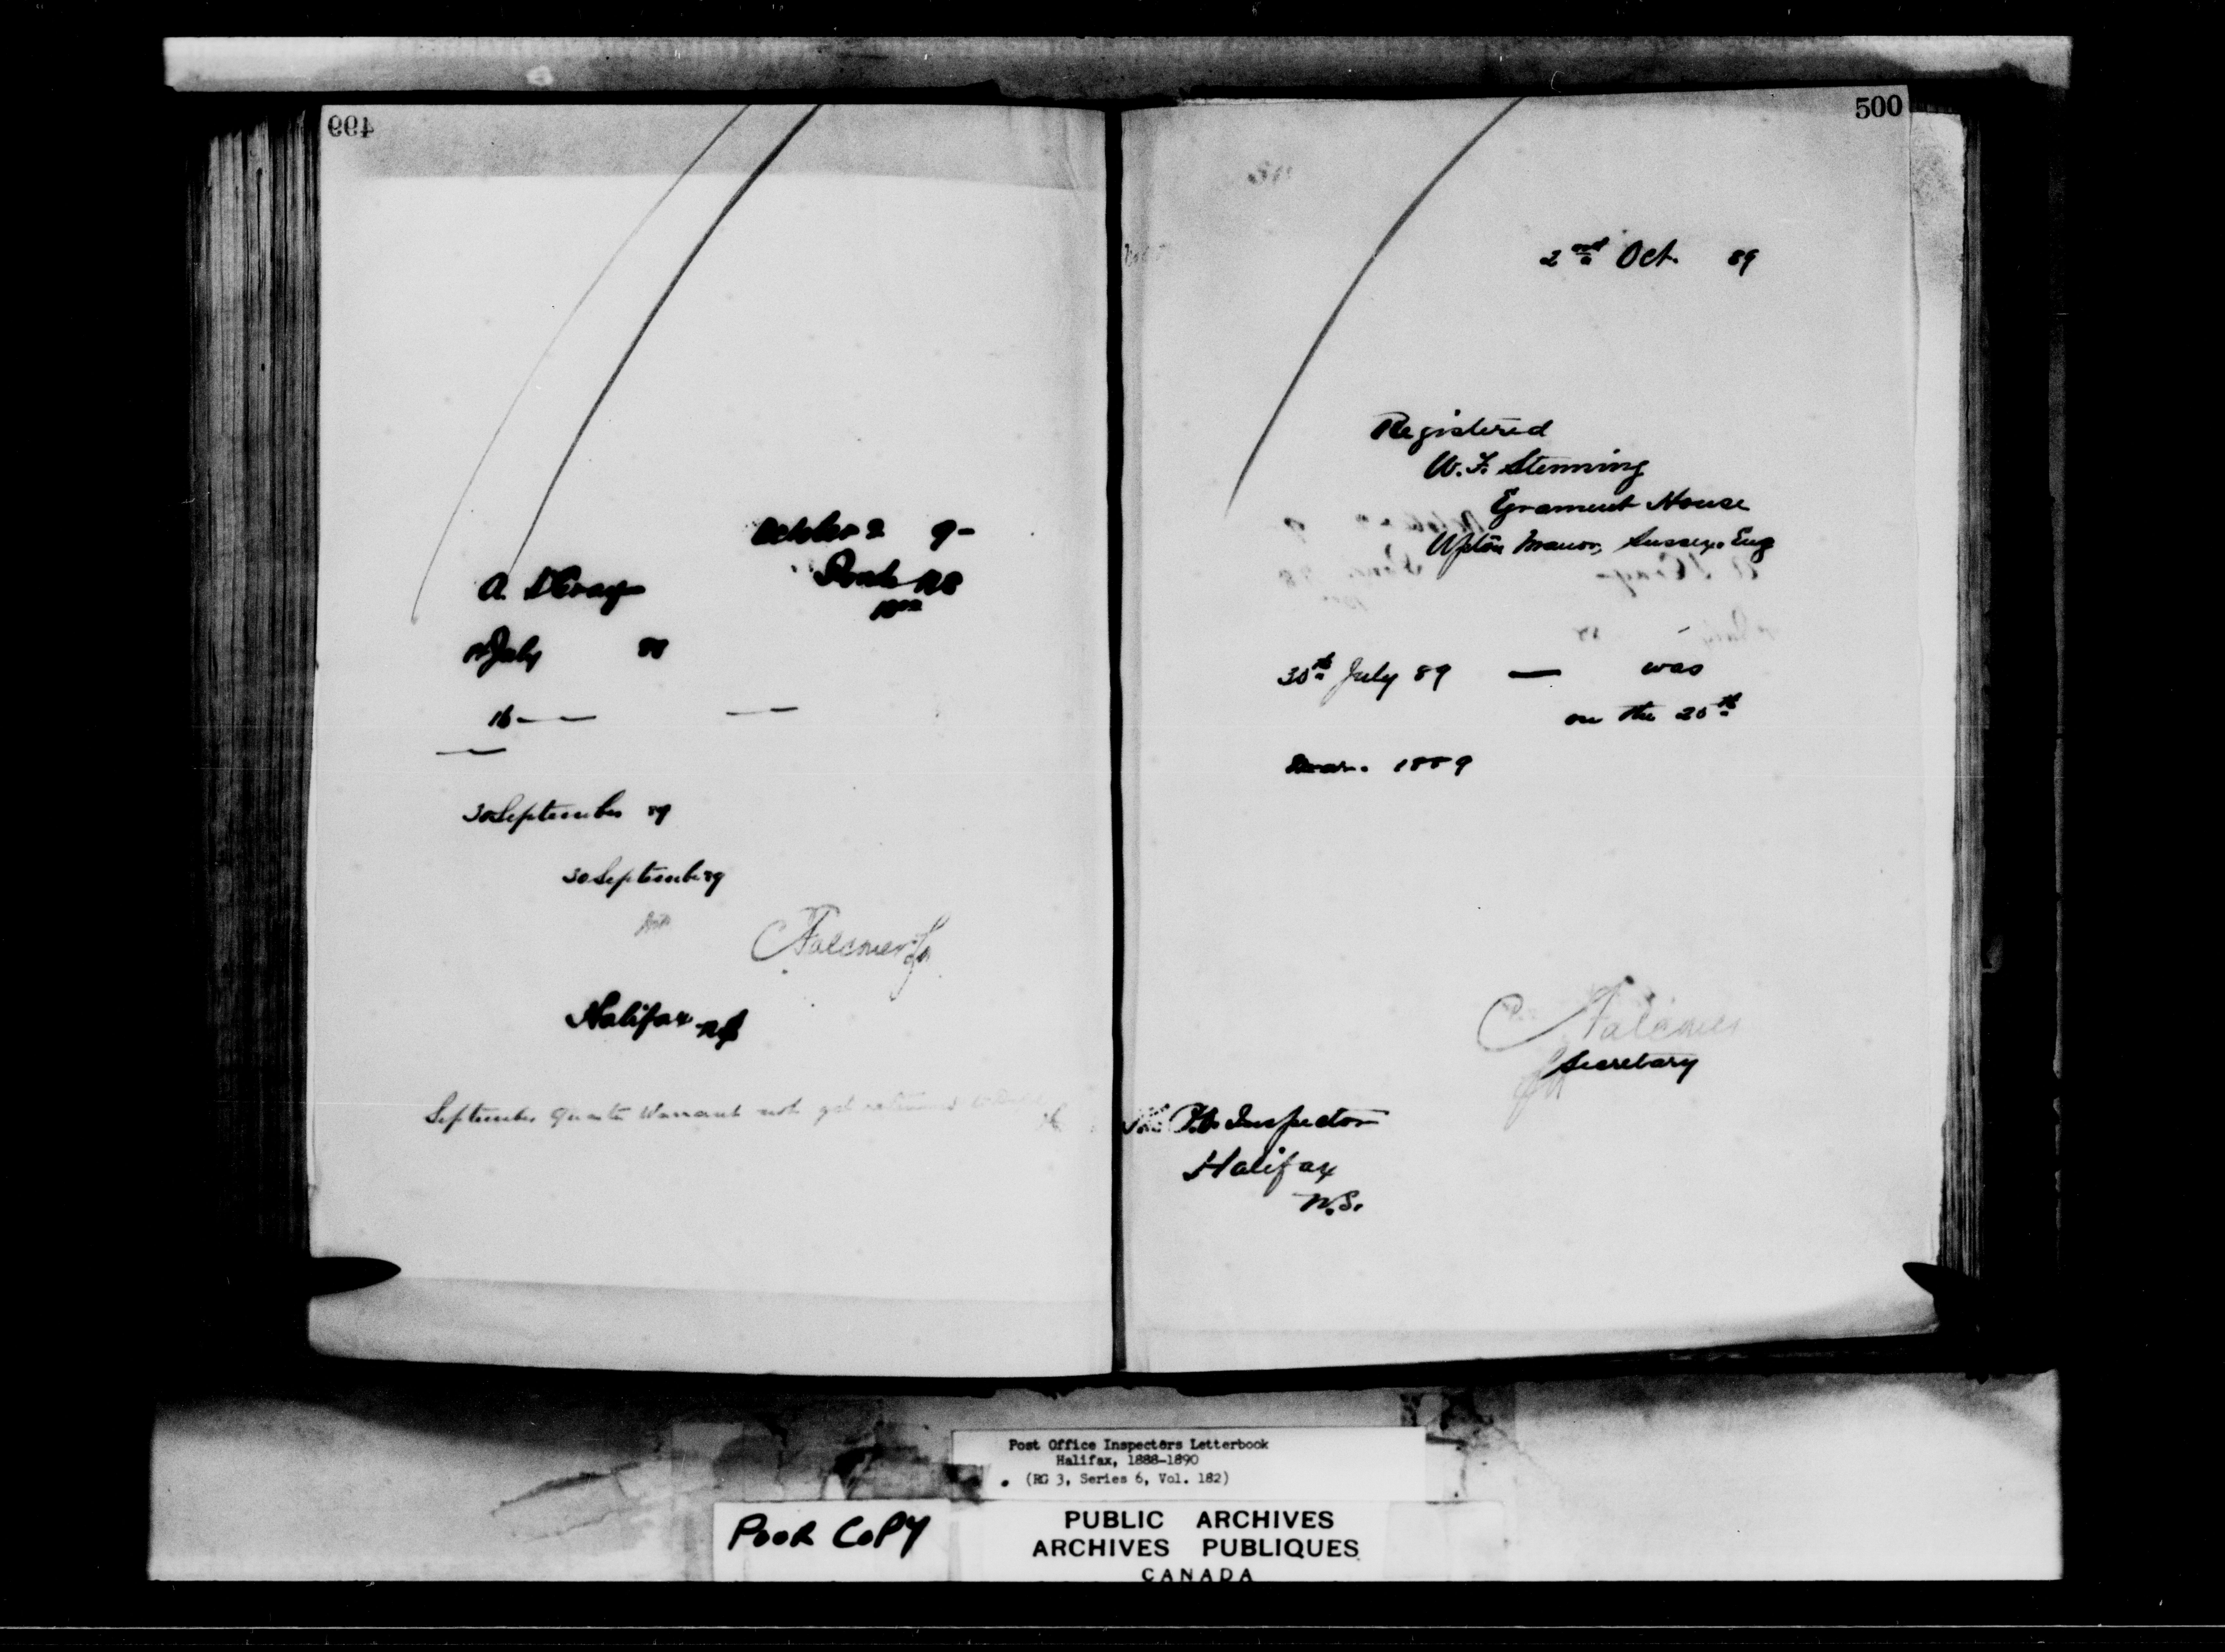 499
October 2 9-
A.
July
16
30 September 89
30 September 89
Halifax NS
September Quarter Warrant not yet returned
500
2nd Oct. 89
Registered
W. F. Stenning
House
Upton Manor, Sussex, Eng
30th July 89 — was
on the 20th
1889
Falconer
Secretary
P.O. Inspector
Halifax
N.S.
Post Office Inspectors Letterbook
Halifax, 1888-1890
(RG 3, Series 6, Vol. 182)
POOR COPY
PUBLIC ARCHIVES
ARCHIVES PUBLIQUES
CANADA